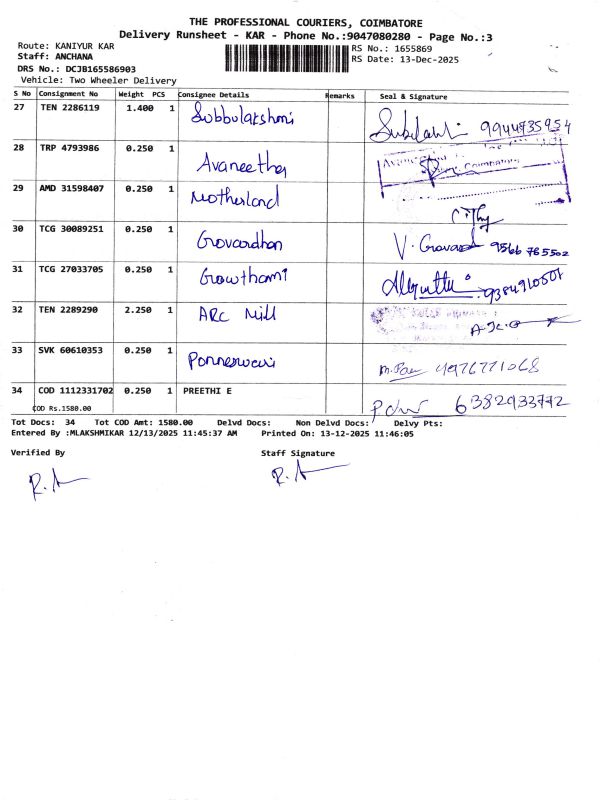 THE PROFESSIONAL COURIERS, COIMBATORE
Delivery Runsheet - KAR - Phone No.:9047080280 - Page No.:3
Route: KANIYUR KAR
Staff: ANCHANA
DRS No.: DCJB165586903
Vehicle: Two Wheeler Delivery
RS No.: 1655869
RS Date: 13-Dec-2025
S No Consignment No Weight PCS Consignee Details Remarks Seal & Signature
27 TEN 2286119 1.400 1 Subbulakshmi 9944735954
28 TRP 4793986 0.250 1 Avaneetha Coimbatore
29 AMD 31598407 0.250 1 Motherland
30 TCG 30089251 0.250 1 Govardhan V. Govard 9566 765502
31 TCG 27033705 0.250 1 Gowthami 9384910501
32 TEN 2289290 2.250 1 ARC Mill
33 SVK 60610353 0.250 1 Ponneswari 4976771068
34 COD 1112331702 0.250 1 PREETHI E 6382933772
COD Rs.1580.00
Tot Docs: 34 Tot COD Amt: 1580.00 Delvd Docs: Non Delvd Docs: Delvy Pts:
Entered By :MLAKSHMIKAR 12/13/2025 11:45:37 AM Printed On: 13-12-2025 11:46:05
Verified By Staff Signature